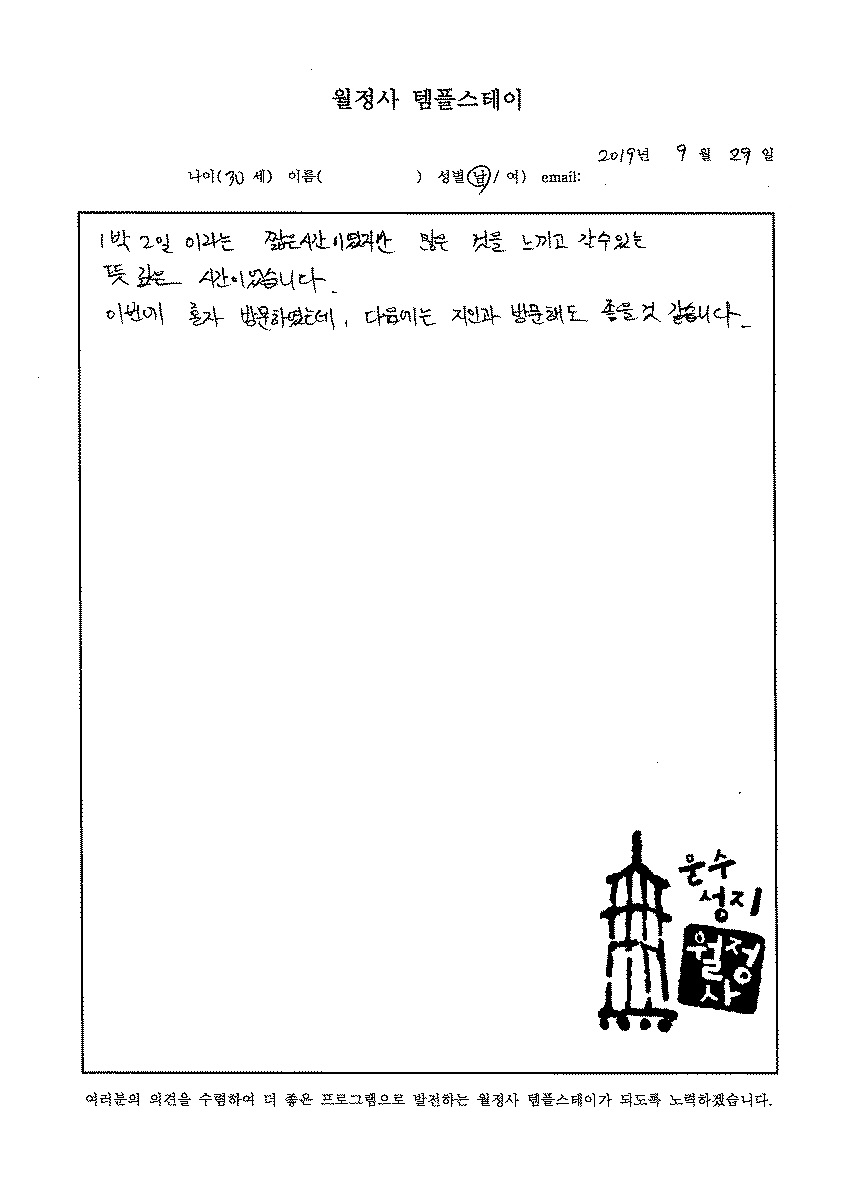 월정사 템플스테이
2019년 9월 29일
나이(30 세) 이름( ) 성별(남/ 여) email:
1박 2일 이라는 짧은시간이었지만 많은 것을 느끼고 갈수있는
뜻 깊은 시간이었습니다.
이번에 혼자 방문하였는데, 다음에는 지인과 방문해도 좋을것 같습니다.
문수
성지
월정
사
여러분의 의견을 수렴하여 더 좋은 프로그램으로 발전하는 월정사 템플스테이가 되도록 노력하겠습니다.